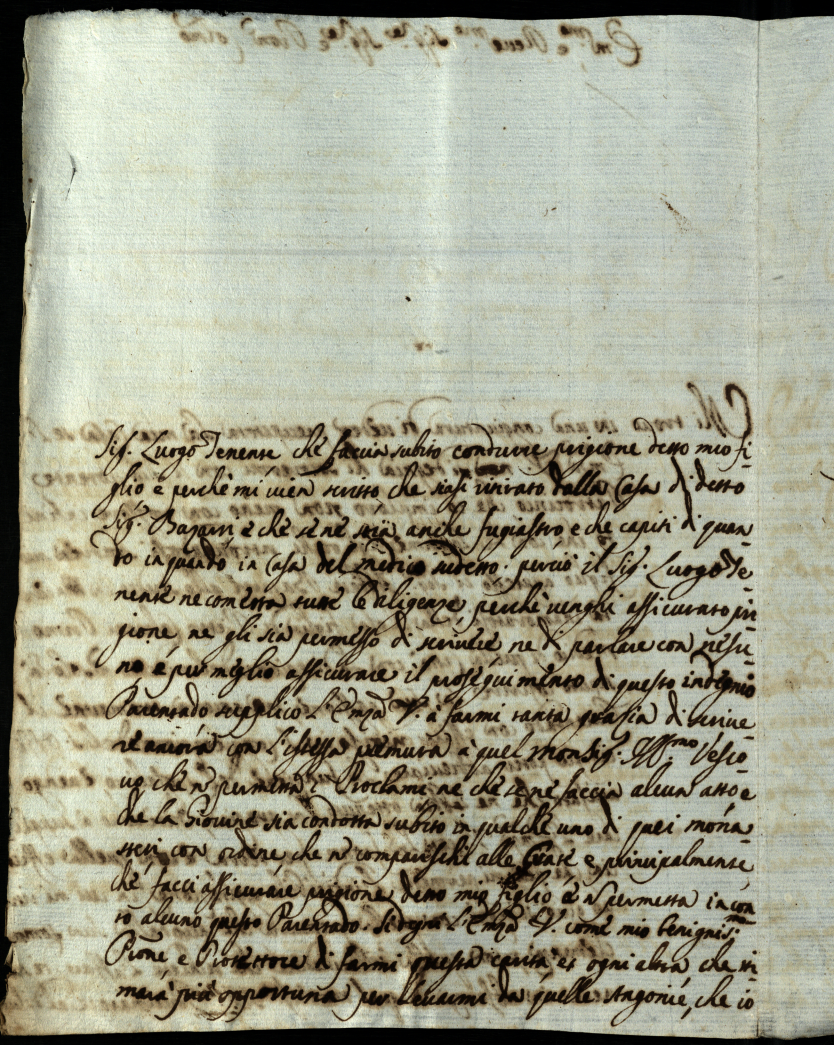 Sig. Luogo Tenente che faccia subito condurre prigione detto mio fi-
glio e perche mi vien scritto che siasi ritirato dalla Casa di detto
Sig. e che se ne stia anche fugiasco e che capiti di quan-
do in quando in Casa del medico sudetto. perciò il Sig. Luogo Te-
nente ne cometta tutte le diligenze, perche venghi assicurato pri-
gione ne gli sia permesso di scrivere ne di parlare con nesu-
no e per meglio assicurare il proseguimento di questo indegnio
Parentado supplico l'Emza V. à farmi tanta grazia di scrive-
re ancora con l'istessa premura a quel Monsig. Illmo Vesco-
vo che n permetta i Proclami ne che se ne faccia alcun atto e
che la Giovine sia condotta subito in qualche uno di quei mona-
steri con ordine che n comparischi alle Grate e principalmente
che facci assicurare prigione detto mio figlio e n permetta in con-
to alcuno questo Parentado. Si degni l'Emza V. come mio benignis.mo
Prone e Protettore di farmi questa carità et ogni altra che sti-
marà più opportuna per levarmi da quelle angonie, che io